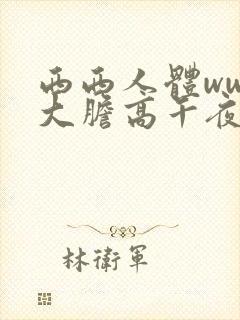 西西人體ww
大膽高午夜
林衛軍